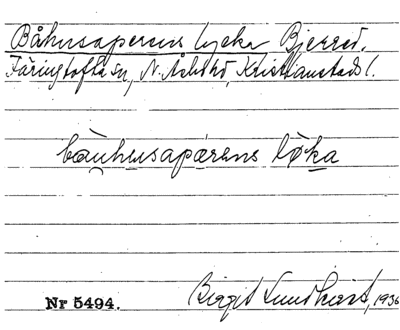 Båhusapersens lycka Bjered.
Färingtofta sn, N. Åsbo hd, Kristianstads l.
bau̯husapärens løka
Nr 5494.
Birgit Lundkvist, 1936